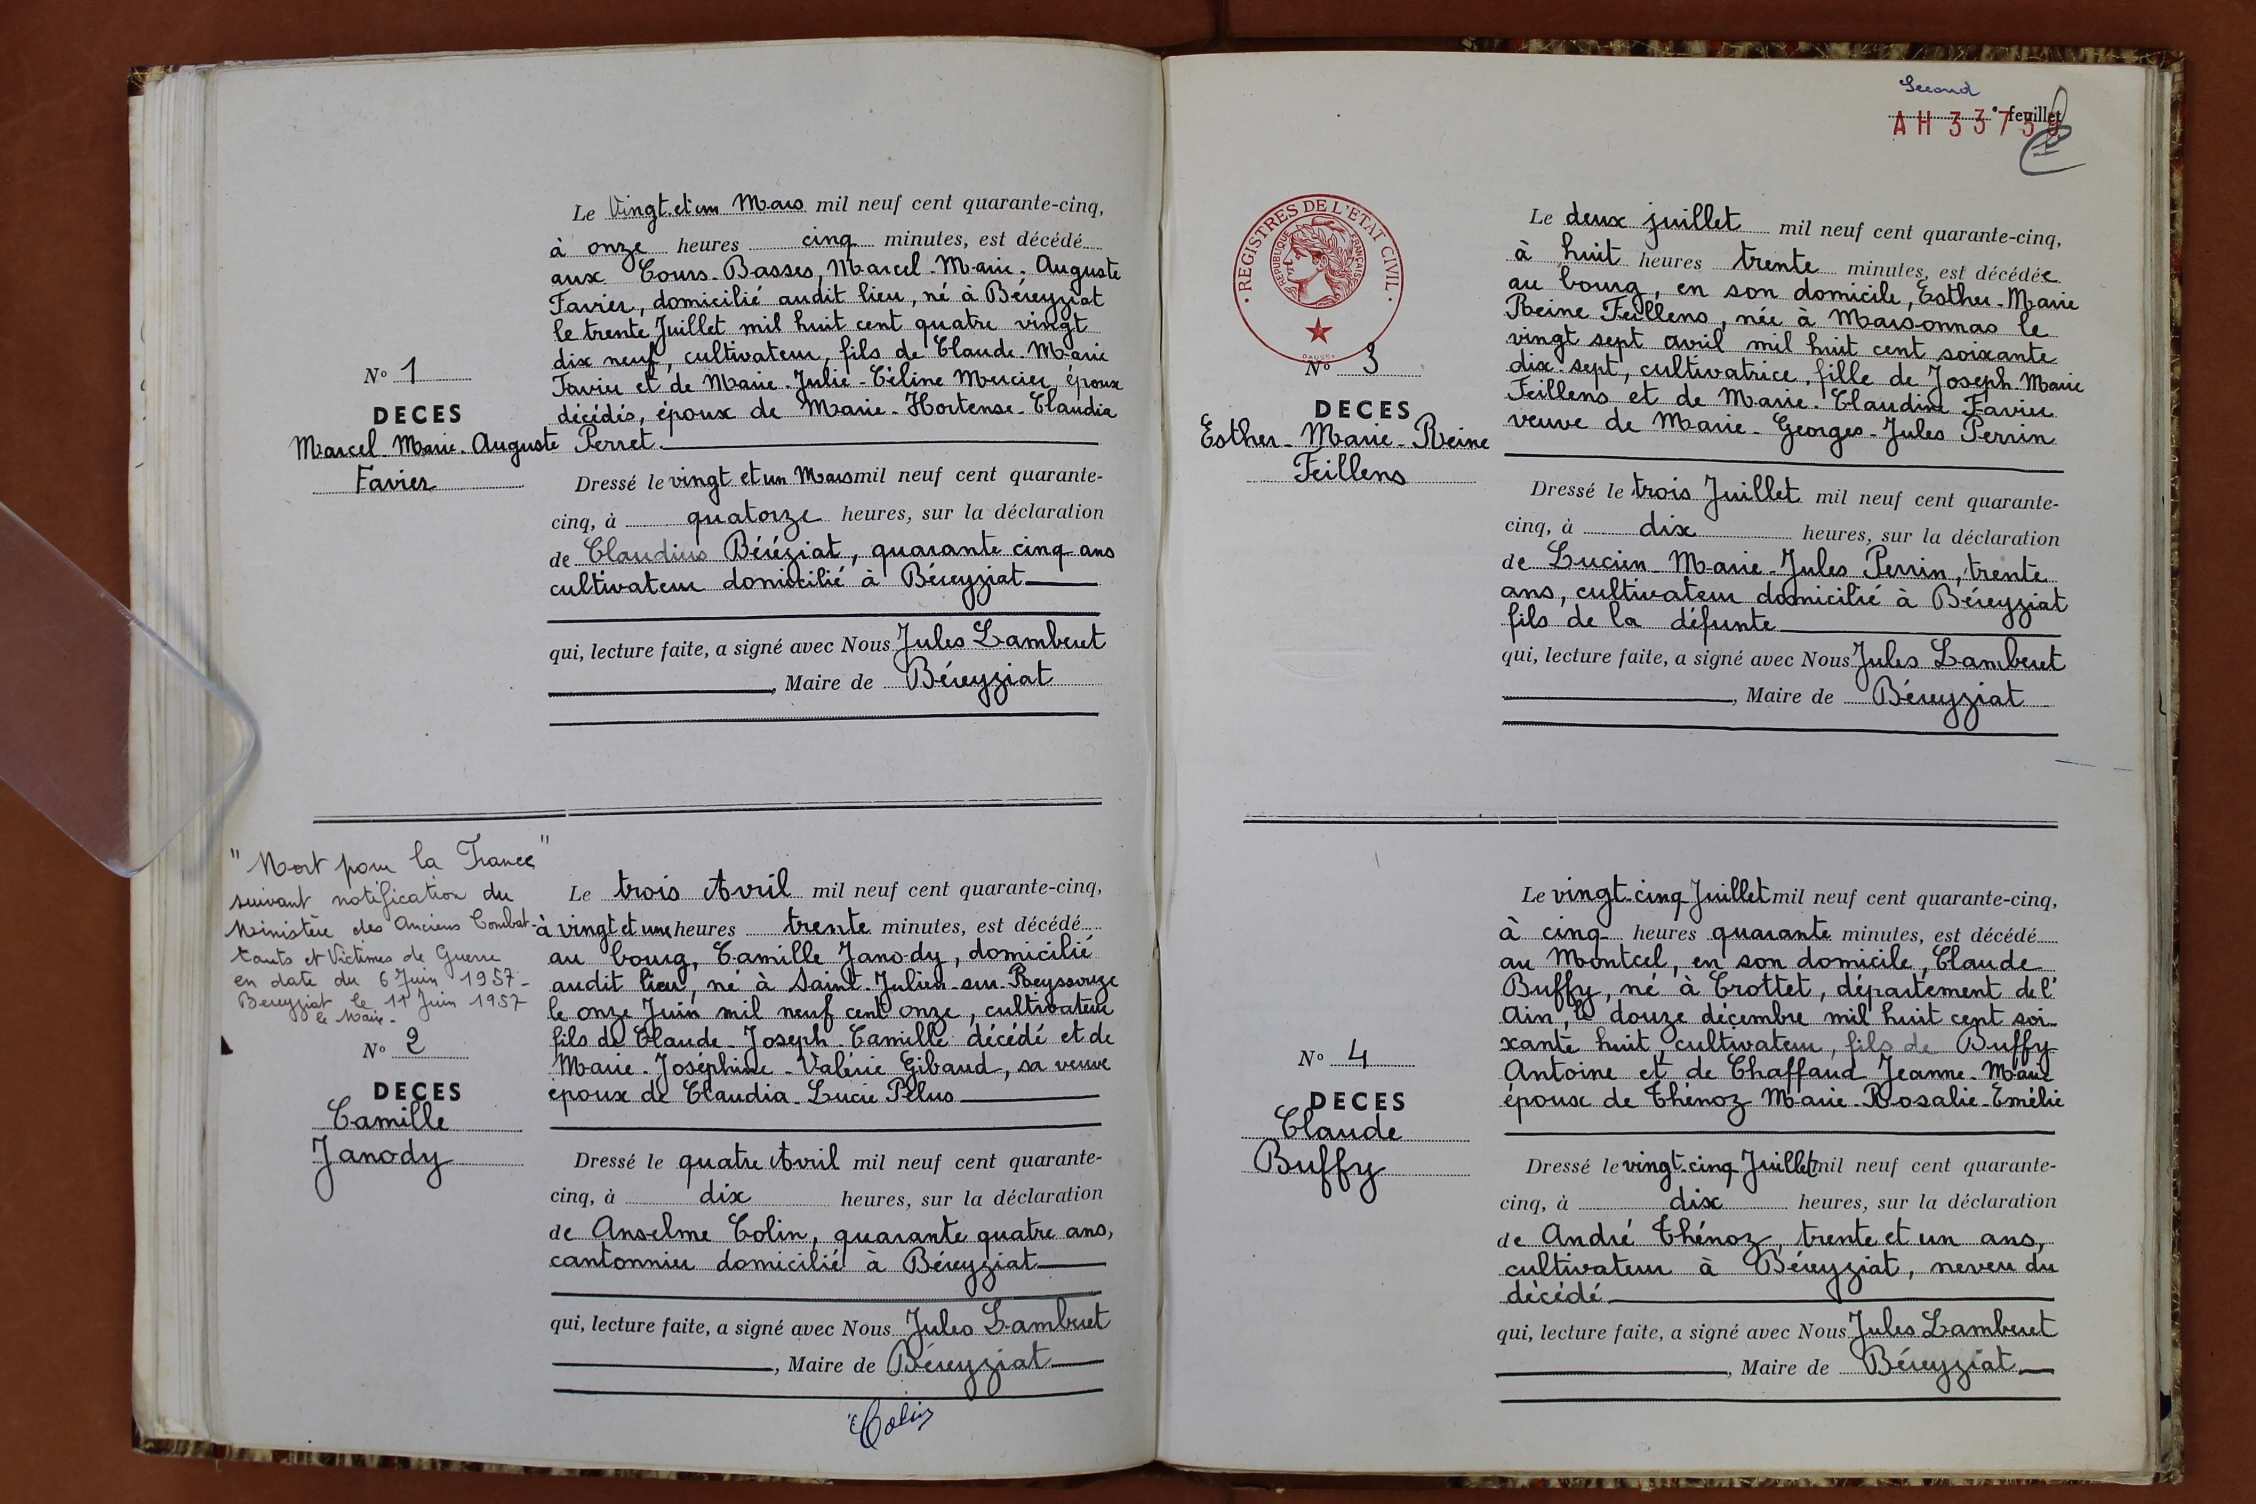 Le Vingt et un Mars mil neuf cent quarante-cinq,
à onze heures cinq minutes, est décédé
aux Cours-Basses, Marcel-Marie-Auguste
Favier, domicilié audit lieu, né à Béreyziat
le trente Juillet mil huit cent quatre vingt
dix neuf, cultivateur, fils de Claude-Marie
Favier et de Marie-Julie-Céline Mercier, époux
décédés, époux de Marie-Hortense-Claudia
Perret
N° 1
DECES
Marcel-Marie-Auguste
Favier
Dressé le vingt et un Mars mil neuf cent quarante-
cinq, à quatorze heures, sur la déclaration
de Claudius Béréziat, quarante cinq ans
cultivateur domicilié à Béreyziat
qui, lecture faite, a signé avec Nous Jules Lamberet
, Maire de Béreyziat
"Mort pour la France"
suivant notification du
Ministère des Anciens Combat-
tants et Victimes de Guerre
en date du 6 Juin 1957-
Bereyziat le 11 Juin 1957
le Maire-
N° 2
DECES
Camille
Janody
Le trois Avril mil neuf cent quarante-cinq,
à vingt et une heures trente minutes, est décédé
au bourg, Camille Janody, domicilié
audit lieu, né à Saint-Julien-sur-Reyssouze
le onze Juin mil neuf cent onze, cultivateur
fils de Claude-Joseph-Camille décédé et de
Marie-Joséphine-Valérie Gibaud, sa veuve
époux de Claudia-Lucie Pélus
Dressé le quatre Avril mil neuf cent quarante-
cinq, à dix heures, sur la déclaration
de Anselme Colin, quarante quatre ans,
cantonnier domicilié à Béreyziat
qui, lecture faite, a signé avec Nous Jules Lamberet
, Maire de Béreyziat
Colin
Second
e feuillet
AH 3373
REGISTRES DE L'ETAT CIVIL
REPUBLIQUE FRANÇAISE
N° 3
DECES
Esther-Marie-Reine
Feillens
Le deux juillet mil neuf cent quarante-cinq,
à huit heures trente minutes, est décédée
au bourg, en son domicile, Esther-Marie
Reine Feillens, née à Marsonnas le
vingt sept avril mil huit cent soixante
dix-sept, cultivatrice, fille de Joseph-Marie
Feillens et de Marie-Claudine Favier
veuve de Marie-Georges-Jules Perrin
Dressé le trois Juillet mil neuf cent quarante-
cinq, à dix heures, sur la déclaration
de Lucien-Marie-Jules Perrin, trente
ans, cultivateur domicilié à Béreyziat
fils de la défunte
qui, lecture faite, a signé avec Nous Jules Lamberet
, Maire de Béreyziat
N° 4
DECES
Claude
Buffy
Le vingt-cinq Juillet mil neuf cent quarante-cinq,
à cinq heures quarante minutes, est décédé
au Montcel, en son domicile, Claude
Buffy, né à Crottet, département de l'
Ain, le douze décembre mil huit cent soi-
xante huit, cultivateur, fils de Buffy
Antoine et de Chaffaud Jeanne-Marie
époux de Thénoz Marie-Rosalie-Emélie
Dressé le vingt-cinq Juillet mil neuf cent quarante-
cinq, à dix heures, sur la déclaration
de André Thénoz, trente et un ans,
cultivateur à Béreyziat, neveu du
décédé
qui, lecture faite, a signé avec Nous Jules Lamberet
, Maire de Béreyziat